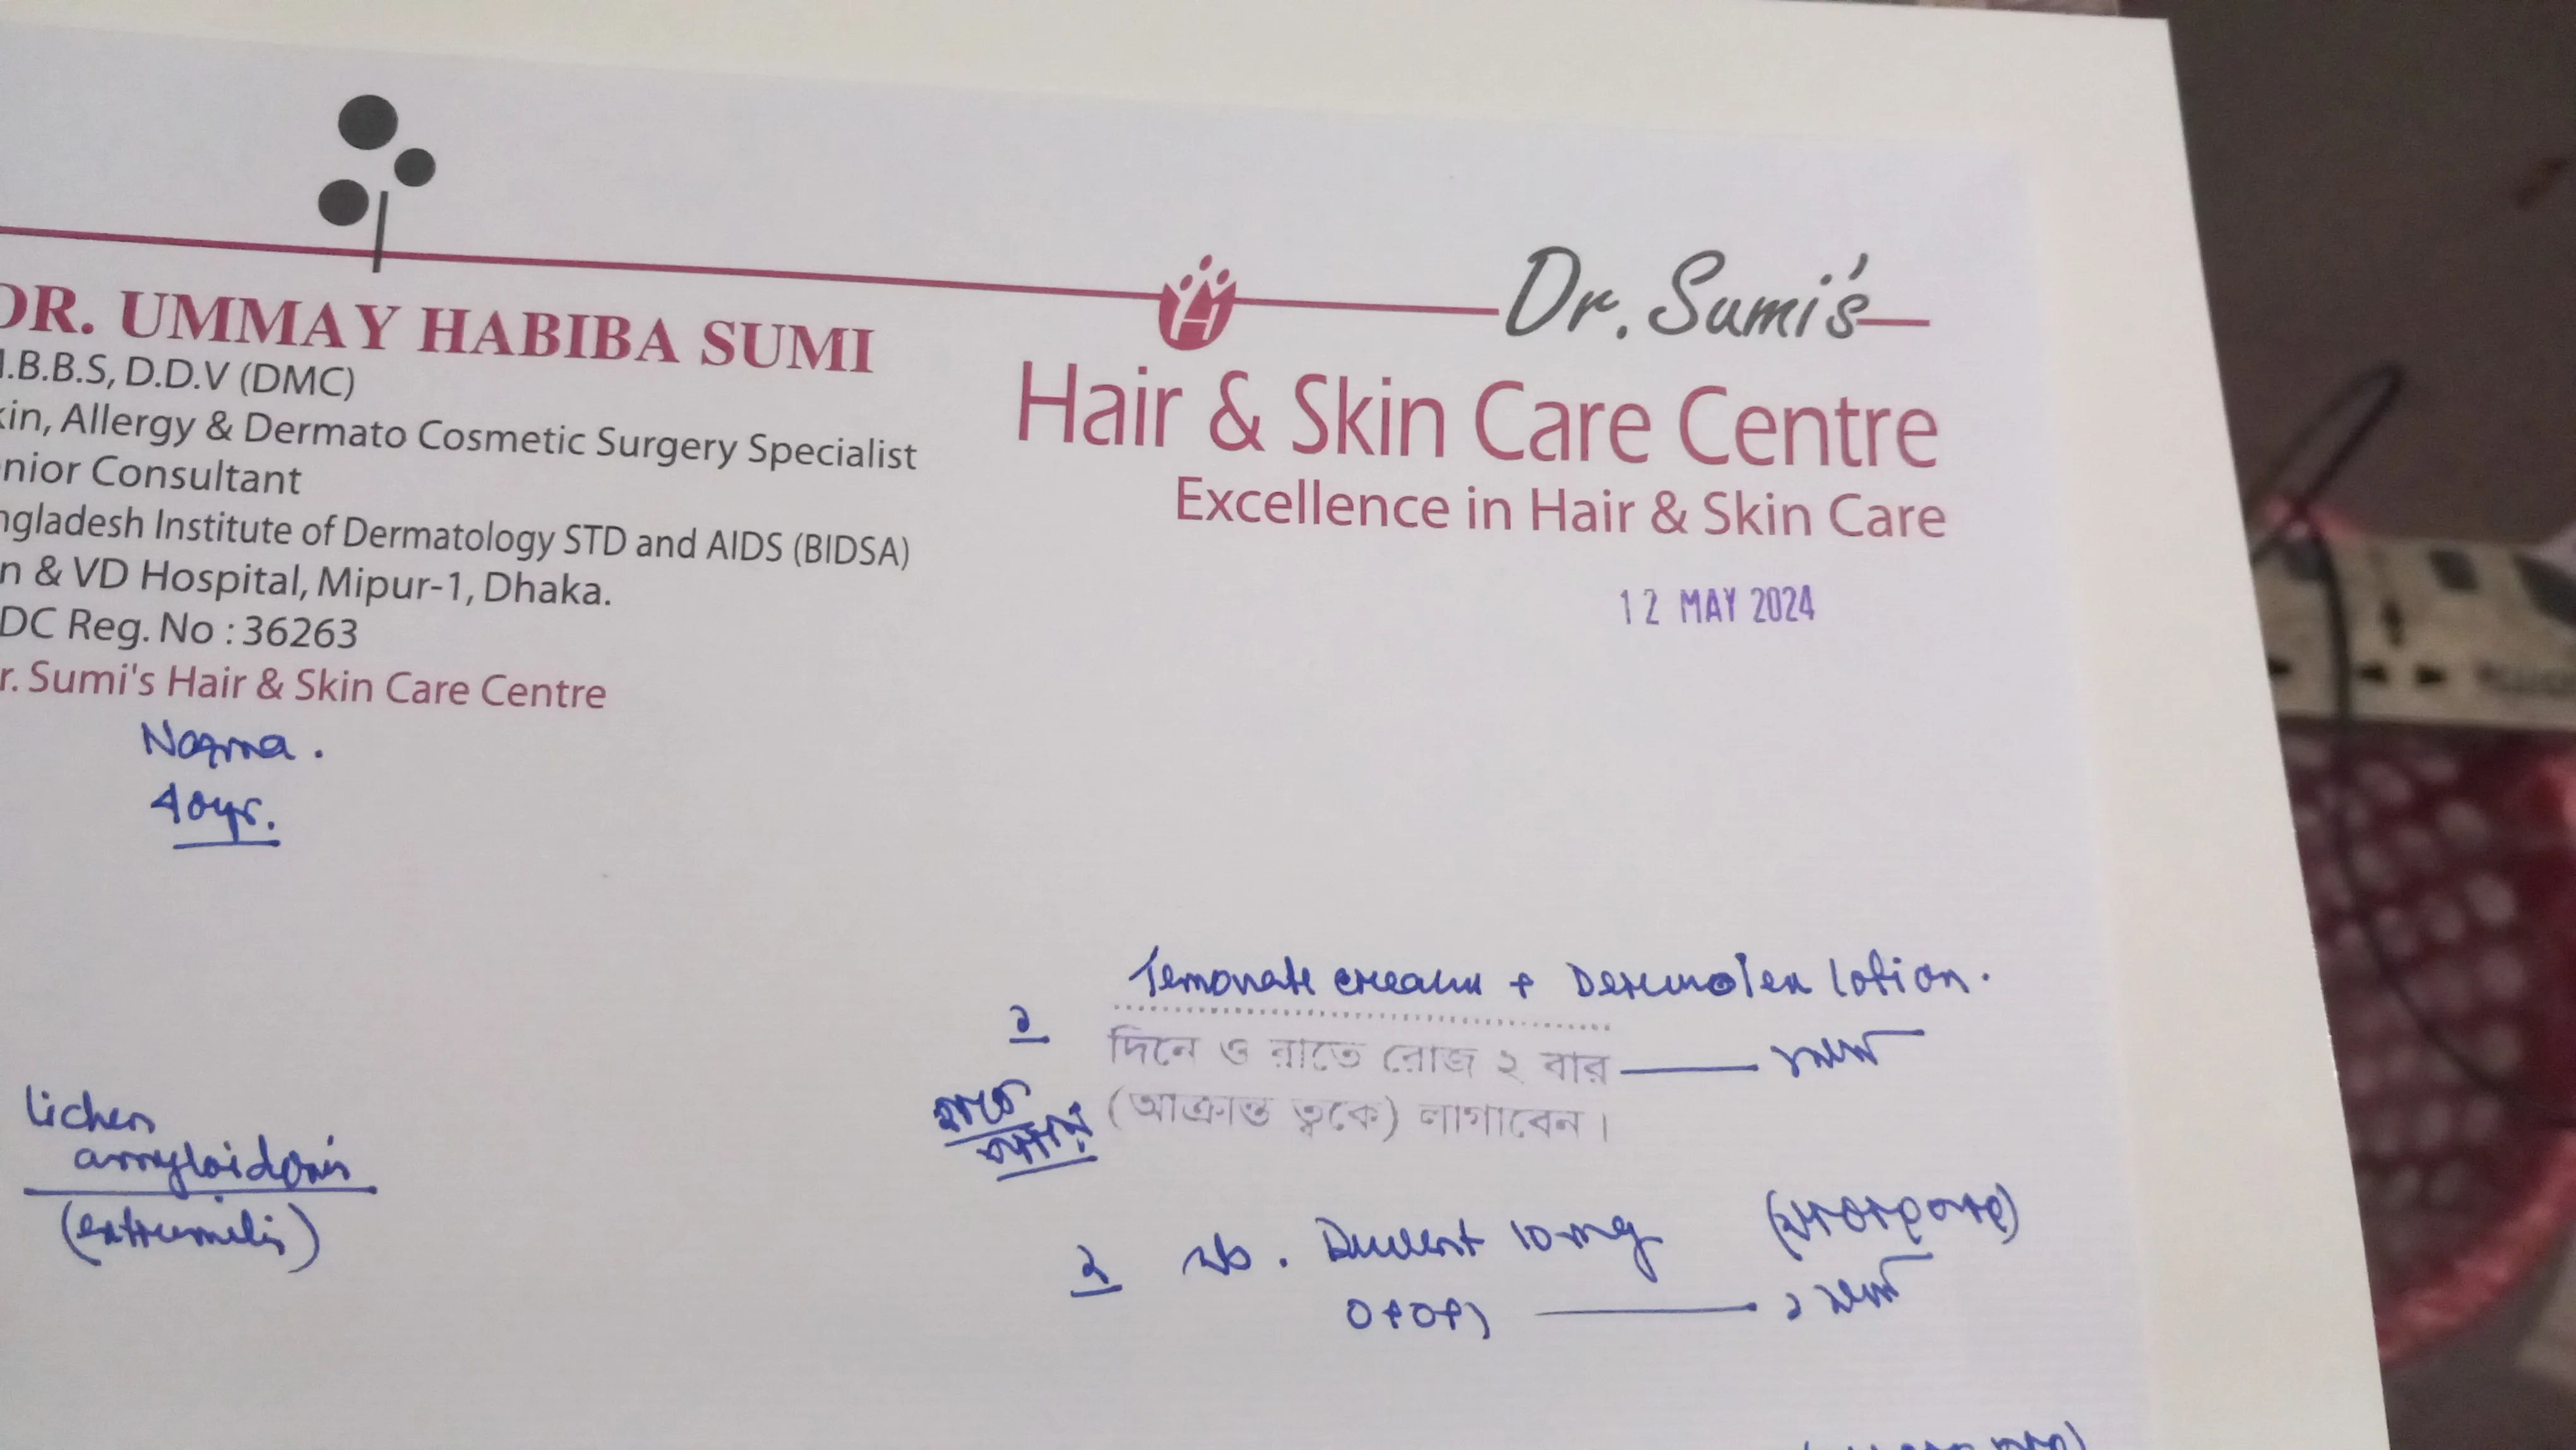 DR. UMMAY HABIBA SUMI
.B.B.S, D.D.V (DMC)
kin, Allergy & Dermato Cosmetic Surgery Specialist
nior Consultant
ngladesh Institute of Dermatology STD and AIDS (BIDSA)
n & VD Hospital, Mipur-1, Dhaka.
DC Reg. No : 36263
r. Sumi's Hair & Skin Care Centre
Dr. Sumi's
Hair & Skin Care Centre
Excellence in Hair & Skin Care
12 MAY 2024
40yr.
lichen
amyloidosis
Temovate cream + Dermolex lotion.
১
দিনে ও রাতে রোজ ২ বার
(আক্রান্ত ত্বকে) লাগাবেন।
২ 10mg
0+0+১